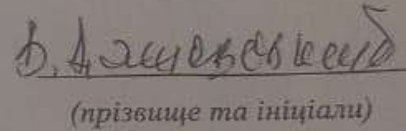 В. Дашевський
(прізвище та ініціали)